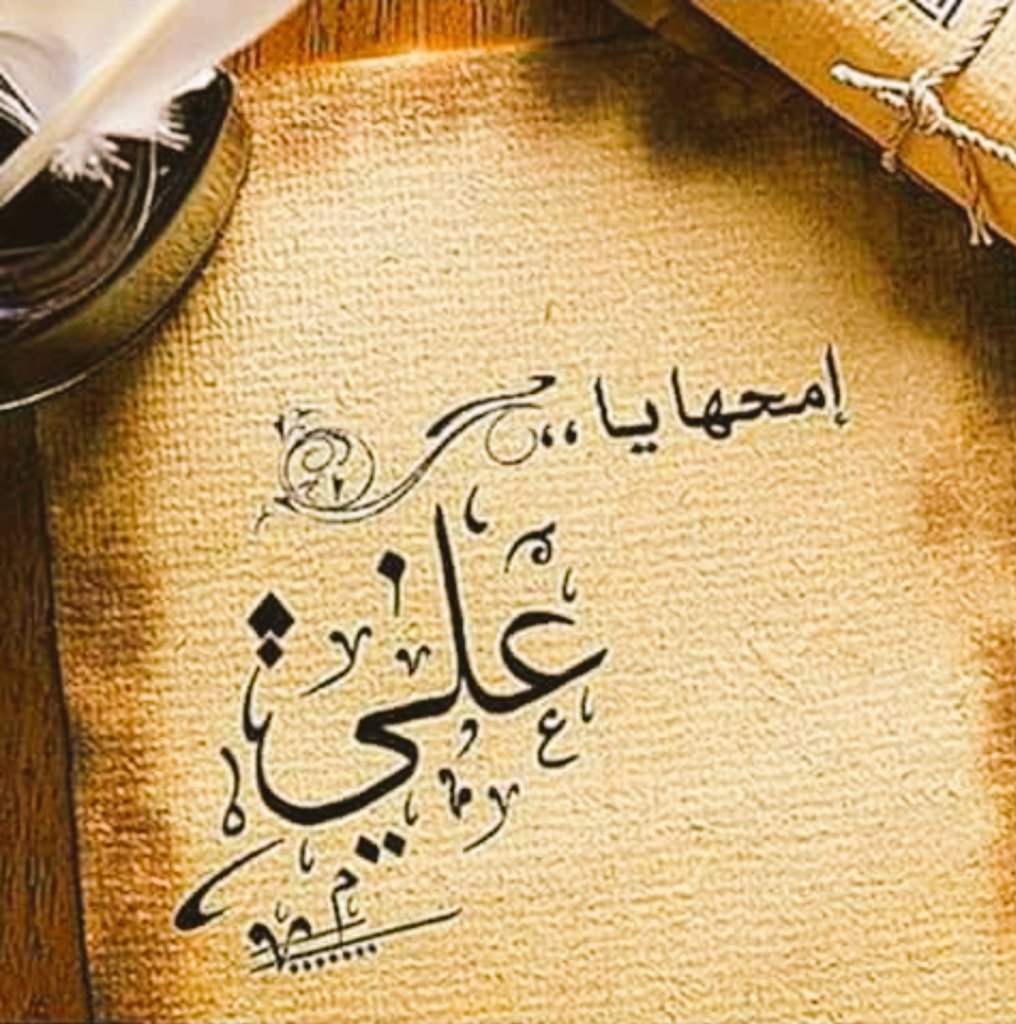 إمحها يا ,,
علي